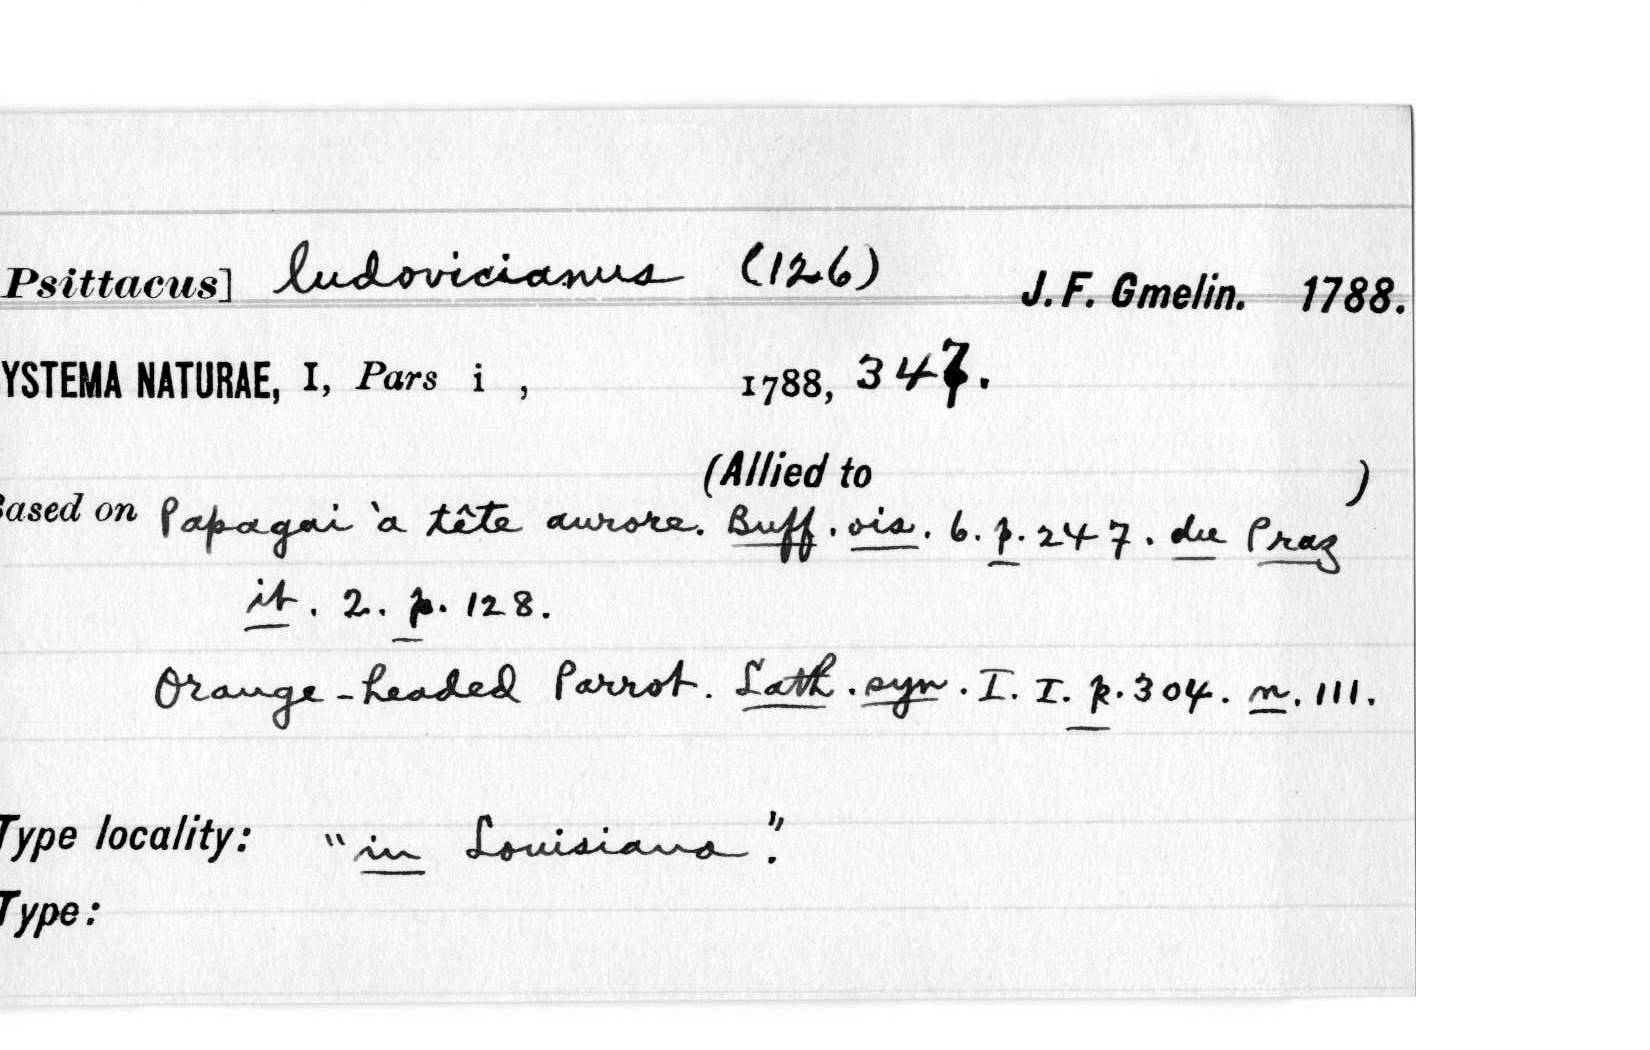 Psittacus] ludovicianus (126) J. F. Gmelin. 1788.
YSTEMA NATURAE, I, Pars i , 1788, 347.
(Allied to )
ased on Papagai à tête aurore. Buff. ois. 6. p. 247. du Praz
it. 2. p. 128.
Orange-headed Parrot. Lath. syn. I. I. p. 304. n. 111.
Type locality: "in Louisiana".
Type: